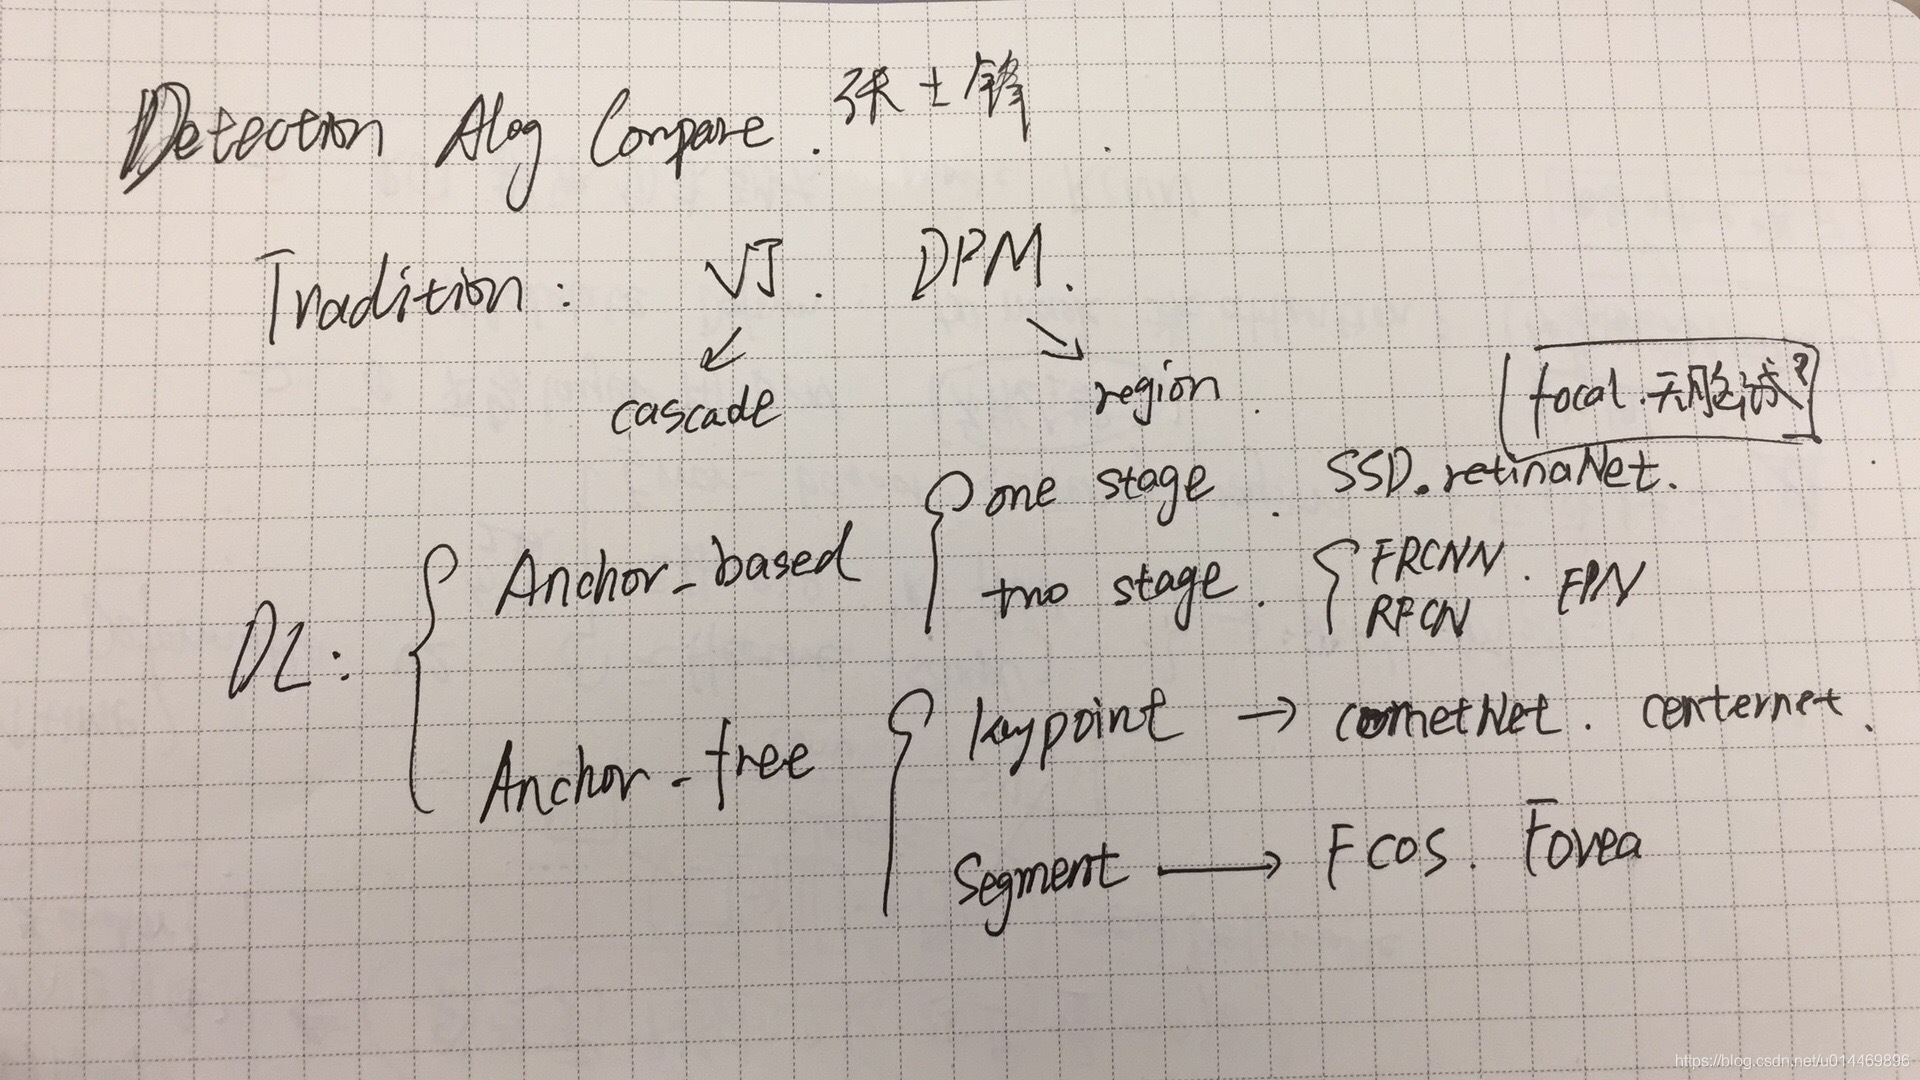 Detection Alog Compare. 张士锋.
Tradition: VJ. DPM.
cascade region.
focal.无脑试?
one stage. SSD.retinaNet.
Anchor-based
two stage. FRCNN. FPN
RFCN
DL:
keypoint → cornetNet. centernet.
Anchor-free
Segment → FCOS. Fovea
https://blog.csdn.net/u014469896